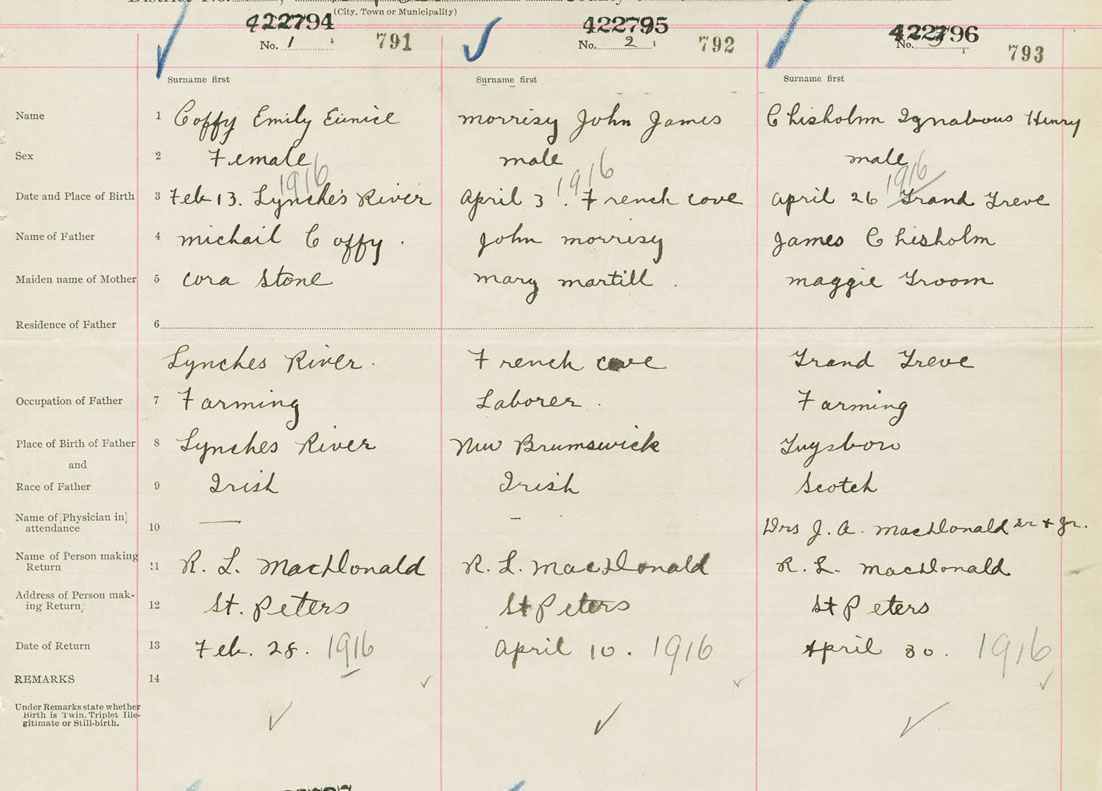 (City, Town or Municipality)
422794 422795 422796
No. 1 791 No. 2 792 No. 3 793
Surname first Surname first Surname first
Name 1 Coffy Emily Eunice morrisy John James Chisholm Ignabous Henry
Sex 2 Female male male
1916 1916 1916
Date and Place of Birth 3 Feb 13. Lynche's River April 3. French cove April 26 Grand Greve
Name of Father 4 michail Coffy. John morrisy James Chisholm
Maiden name of Mother 5 cora Stone mary martill. maggie Groom
Residence of Father 6
Lynches River. French cove Grand Greve
Occupation of Father 7 Farming Laborer. Farming
Place of Birth of Father 8 Lynches River New Brumswick Guysboro
and
Race of Father 9 Irish Irish Scotch
Name of [Physician in]
attendance 10 — - Drs J. A. MacDonald Sr & Jr.
Name of Person making
Return 11 R. L. MacDonald R. L. MacDonald R. L. MacDonald
Address of Person mak-
ing Return 12 St. Peters St Peters St Peters
Date of Return 13 Feb. 28. 1916 April 10. 1916 April 30. 1916
REMARKS 14
Under Remarks state whether
Birth is Twin. Triplet Ille-
gitimate or Still-birth.